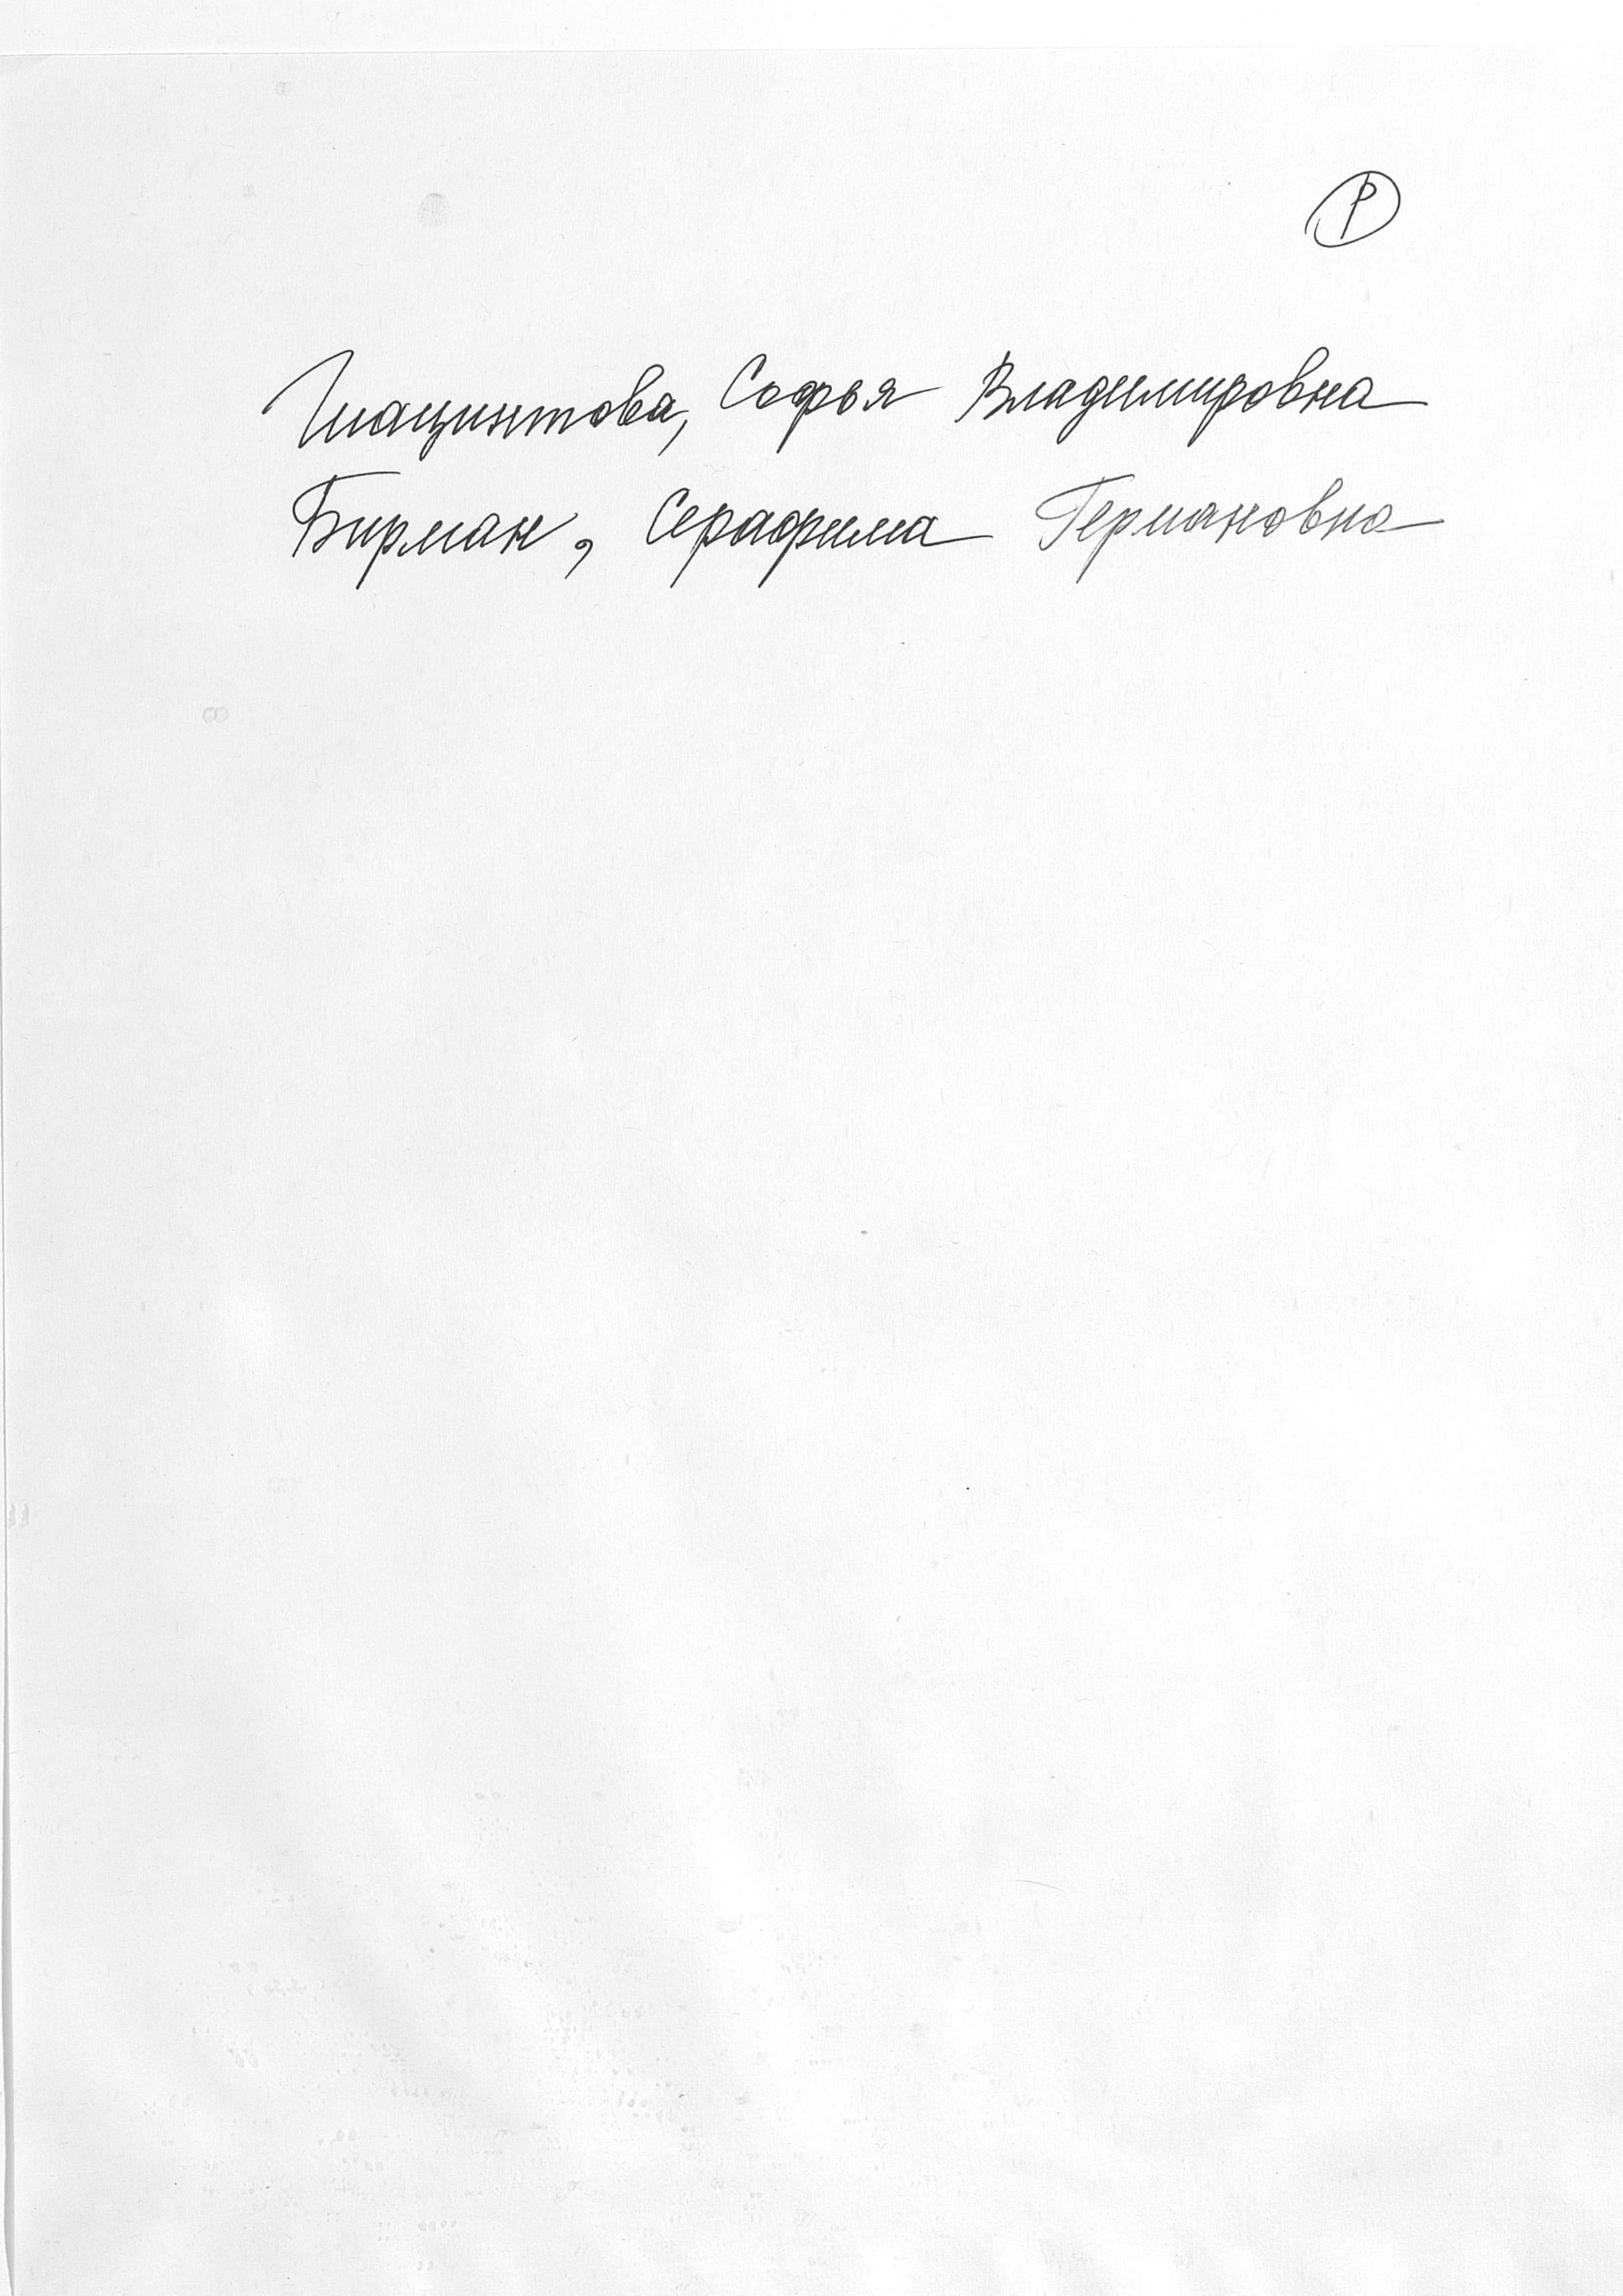 Р
Гиацинтова, Софья Владимировна
Бирман, Серафима Германовна